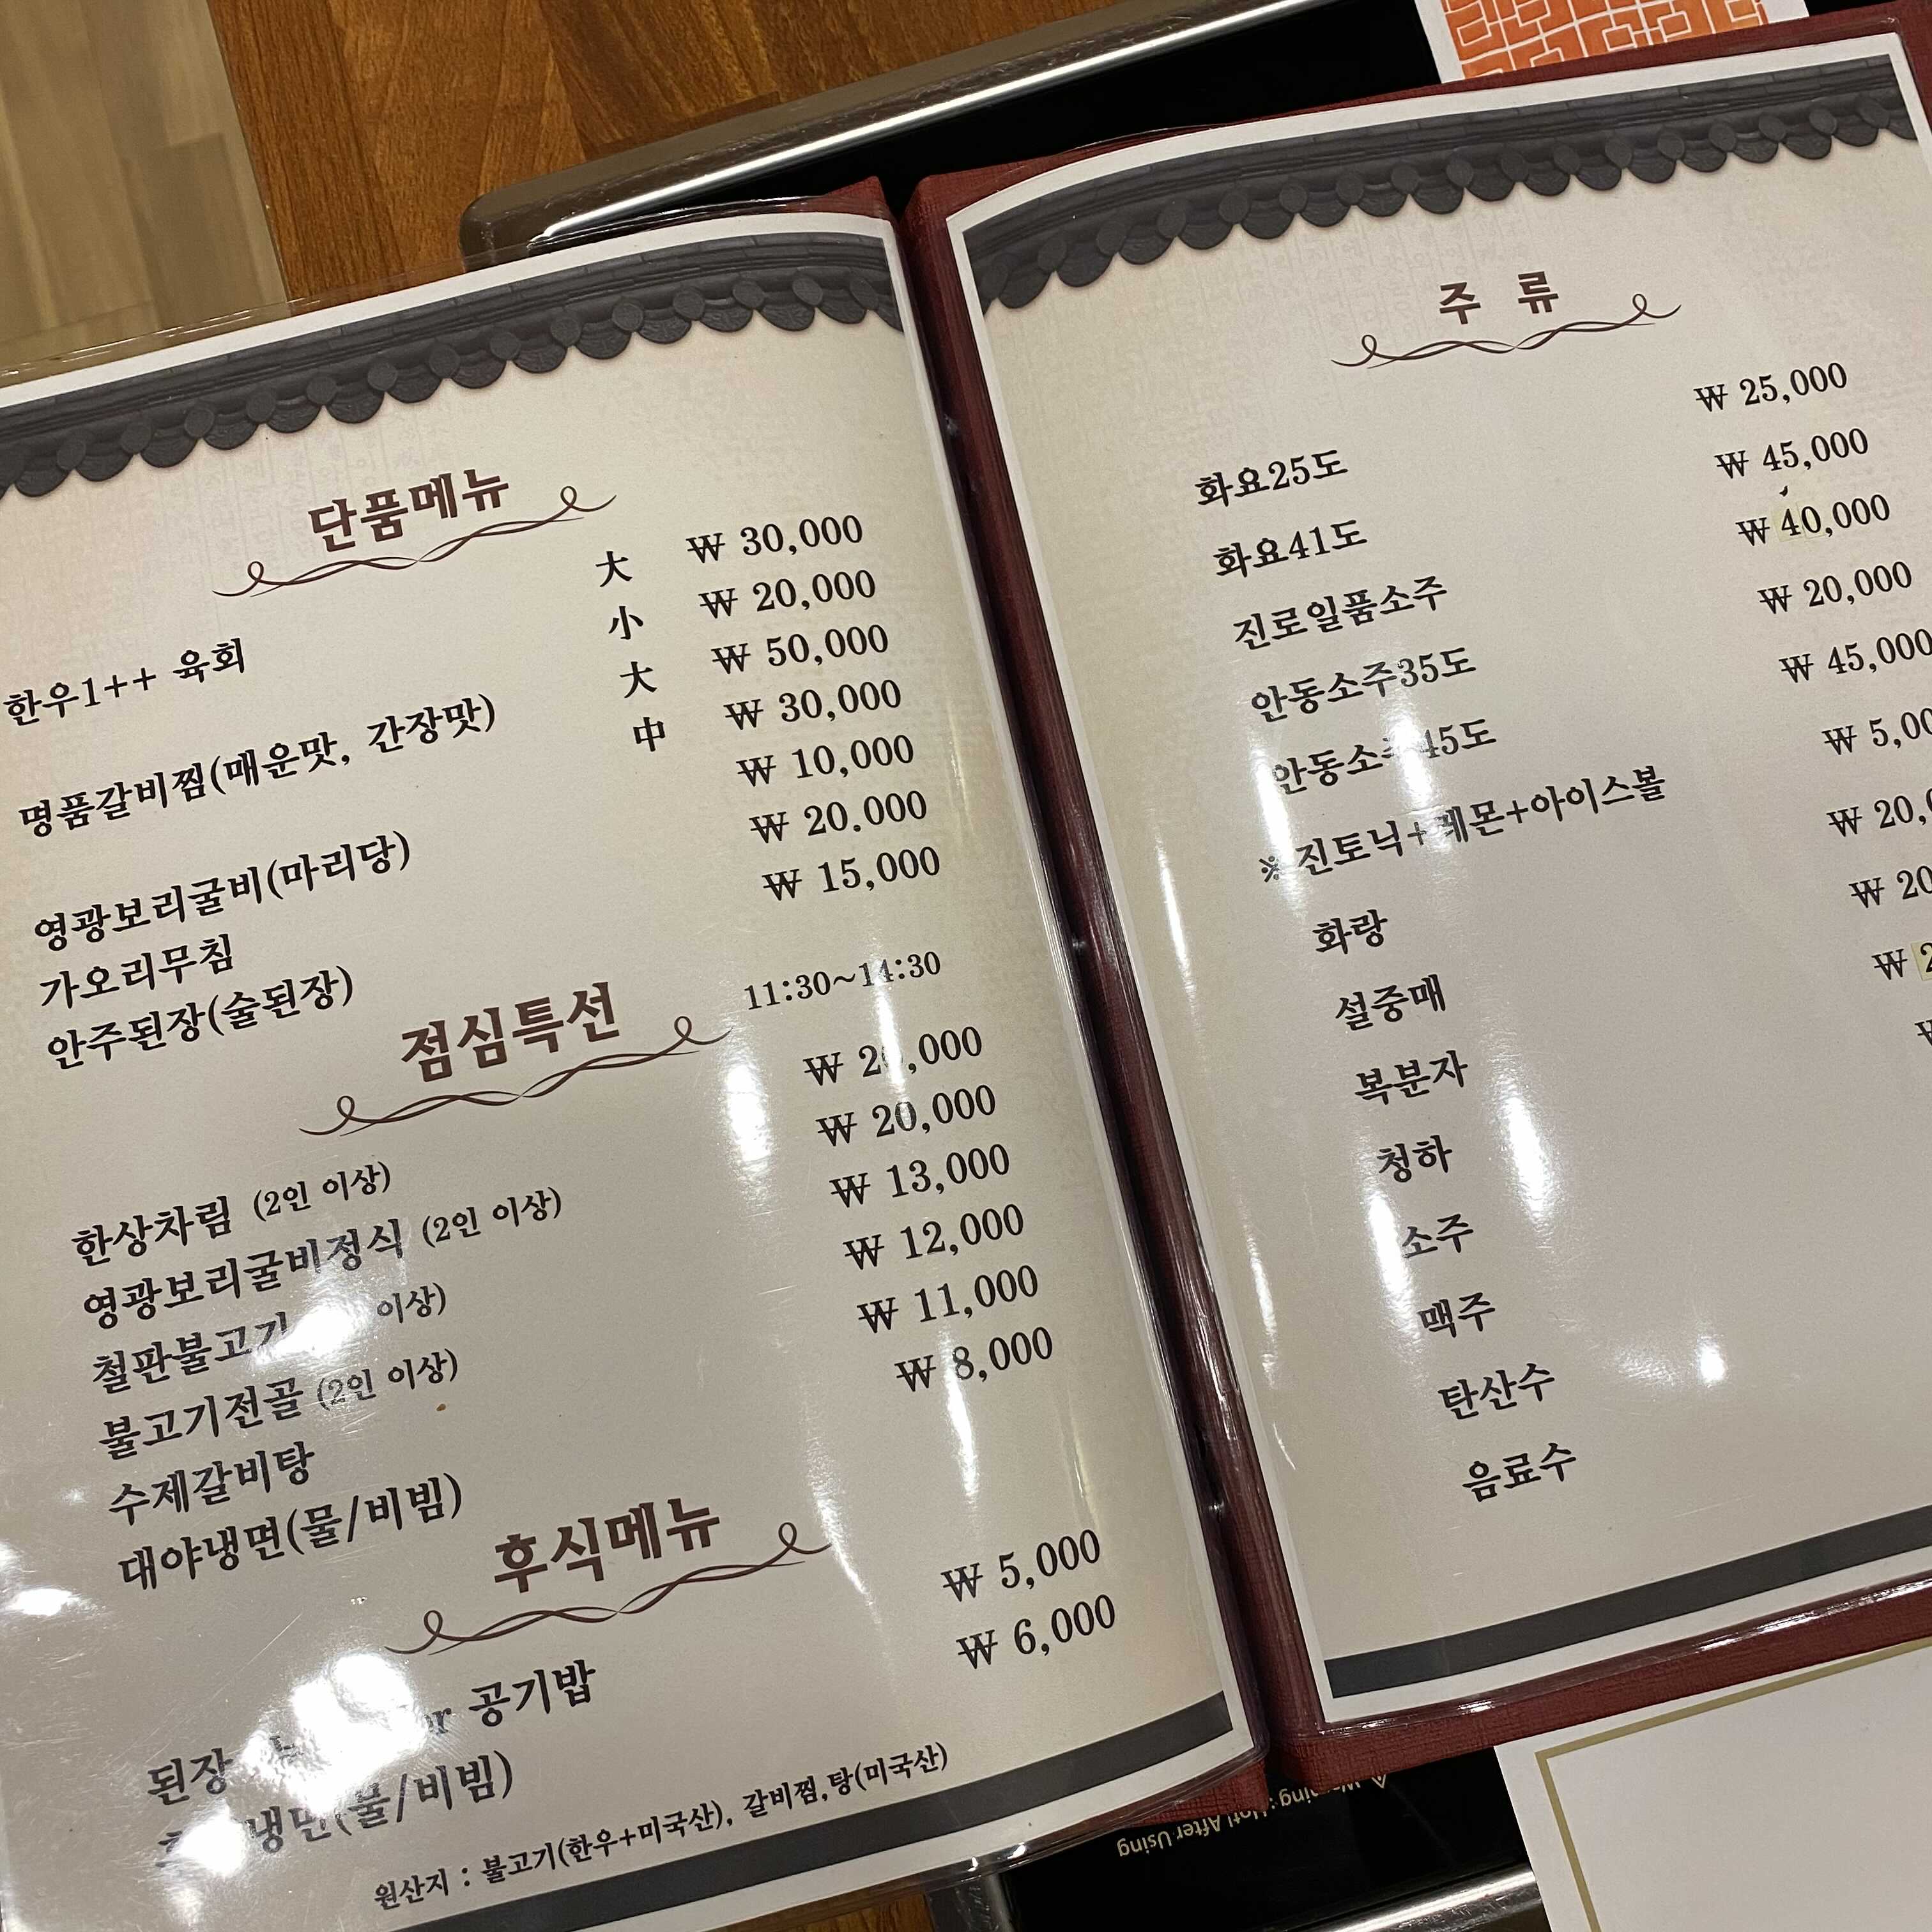 단품메뉴
한우1++ 육회 大 ₩ 30,000
小 ₩ 20,000
명품갈비찜(매운맛, 간장맛) 大 ₩ 50,000
中 ₩ 30,000
영광보리굴비(마리당) ₩ 10,000
가오리무침 ₩ 20.000
안주된장(술된장) ₩ 15,000
점심특선 11:30~14:30
한상차림 (2인 이상) ₩ 2,000
영광보리굴비정식 (2인 이상) ₩ 20,000
철판불고기 이상) ₩ 13,000
불고기전골 (2인 이상) ₩ 12,000
수제갈비탕 ₩ 11,000
대야냉면(물/비빔) ₩ 8,000
후식메뉴
된장 or 공기밥 ₩ 5,000
냉면(물/비빔) ₩ 6,000
원산지 : 불고기(한우+미국산), 갈비찜,탕(미국산)
주 류
화요25도 ₩ 25,000
화요41도 ₩ 45,000
진로일품소주 ₩ 40,000
안동소주35도 ₩ 20,000
안동소주45도 ₩ 45,000
※ 진토닉+레몬+아이스볼 ₩ 5,00
화랑 ₩ 20,0
설중매 ₩ 20
복분자 ₩ 2
청하 ₩
소주
맥주
탄산수
음료수
Warning : Hot! After Using